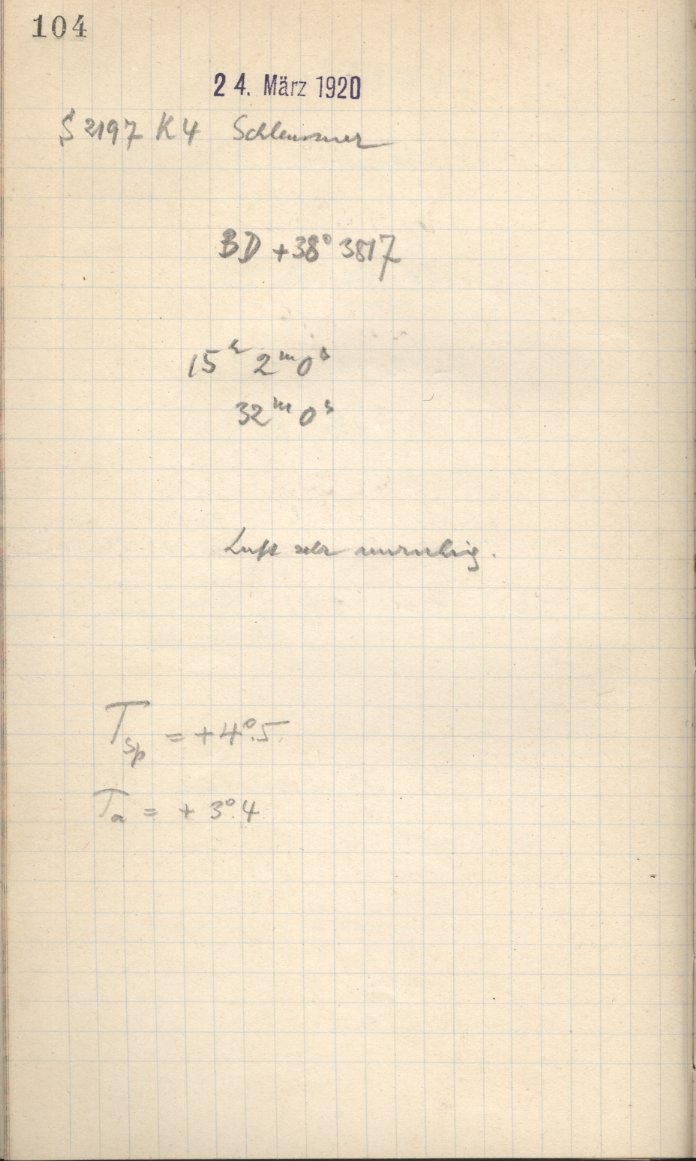 104
24. März 1920
S 2197 K4 Schleussner
BD +38° 3817
15ʰ 2ᵐ 0ˢ
32ᵐ 0ˢ
Luft sehr unruhig.
T_Sp = +4°.5
T_a = +3°.4